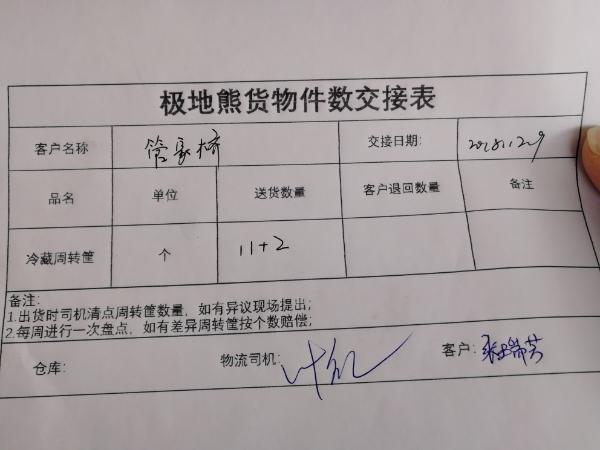 极地熊货物件数交接表
客户名称 管家桥 交接日期:
品名 单位 送货数量 客户退回数量 备注
冷藏周转筐 个 11+2
备注:
1.出货时司机清点周转筐数量，如有异议现场提出;
2.每周进行一次盘点，如有差异周转筐按个数赔偿;
仓库: 物流司机: 客户: